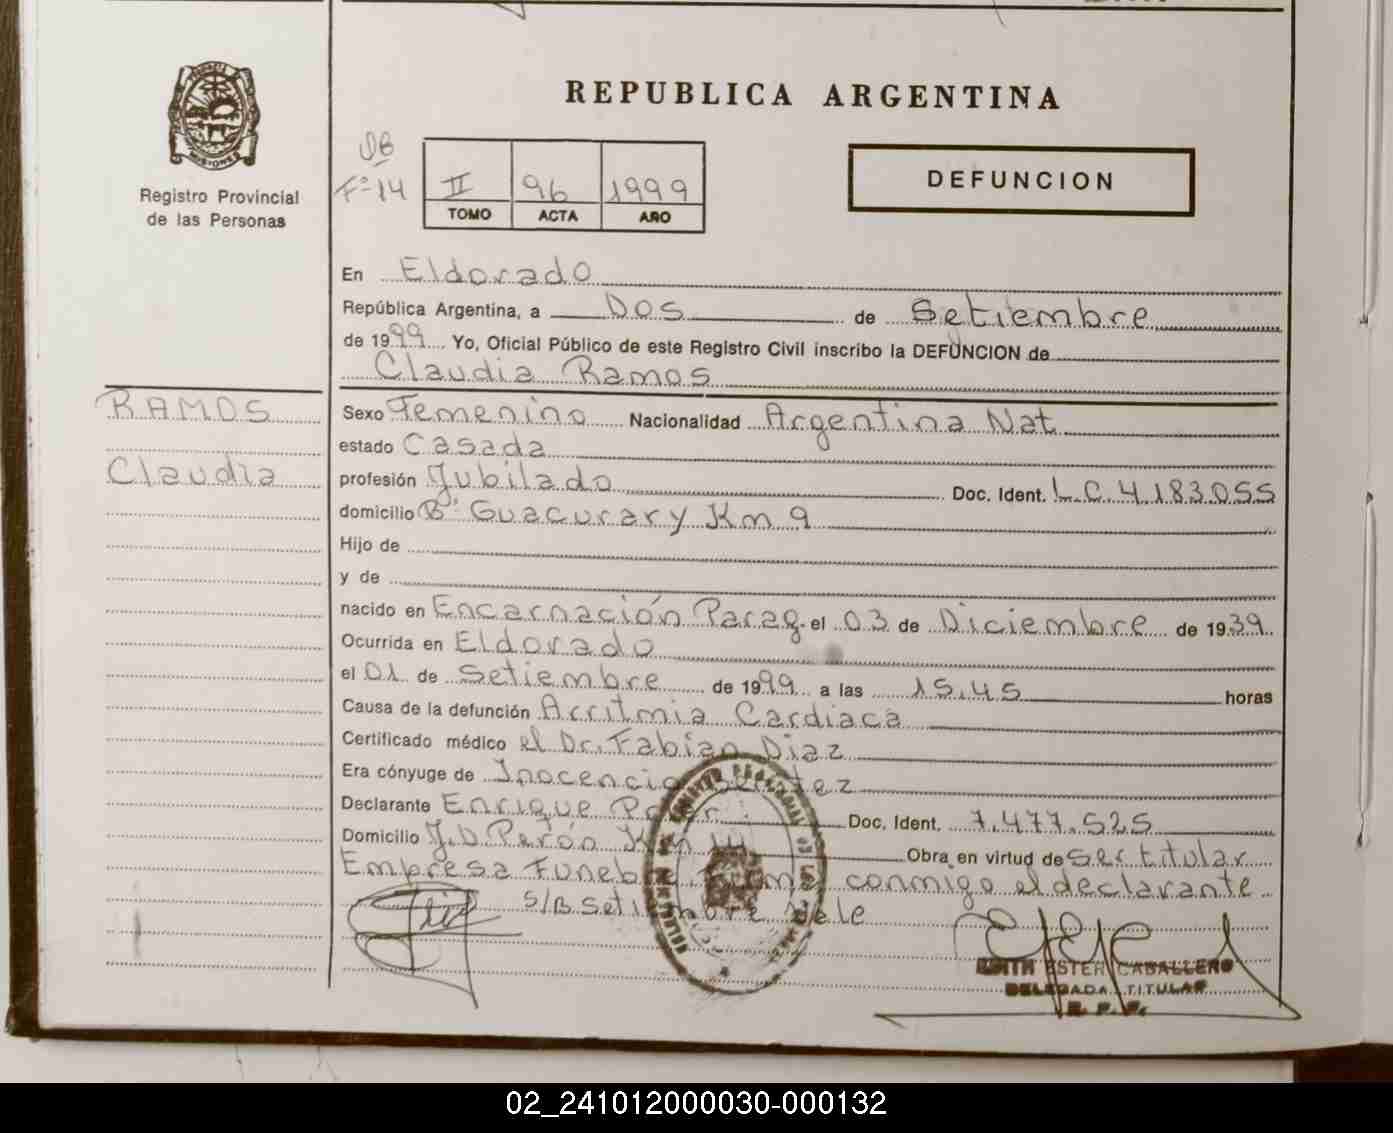 REPUBLICA ARGENTINA
MISIONES
Registro Provincial
de las Personas
F° 14
II 96 1999
TOMO ACTA AÑO
DEFUNCION
En Eldorado
República Argentina, a Dos de Setiembre
de 1999 Yo, Oficial Público de este Registro Civil inscribo la DEFUNCION de
Claudia Ramos
RAMOS
Claudia
Sexo Femenino Nacionalidad Argentina Nat
estado Casada
profesión Jubilado Doc. Ident. L.C 4.183.055
domicilio B° Guacurary Km 9
Hijo de
y de
nacido en Encarnación Parag. el 03 de Diciembre de 1939
Ocurrida en Eldorado
el 01 de Setiembre de 1999 a las 15.45 horas
Causa de la defunción Arritmia Cardiaca
Certificado médico el Dr. Fabian Diaz
Era cónyuge de Inocencio
Declarante Enrique Doc. Ident. 7.477.525
Domicilio J.D. Perón Km Obra en virtud de ser titular
Empresa Funeb conmigo el declarante
S/B Setiembre Vale
EDITH ESTER CABALLERO
DELEGADA TITULAR
R. P. P.
02_241012000030-000132